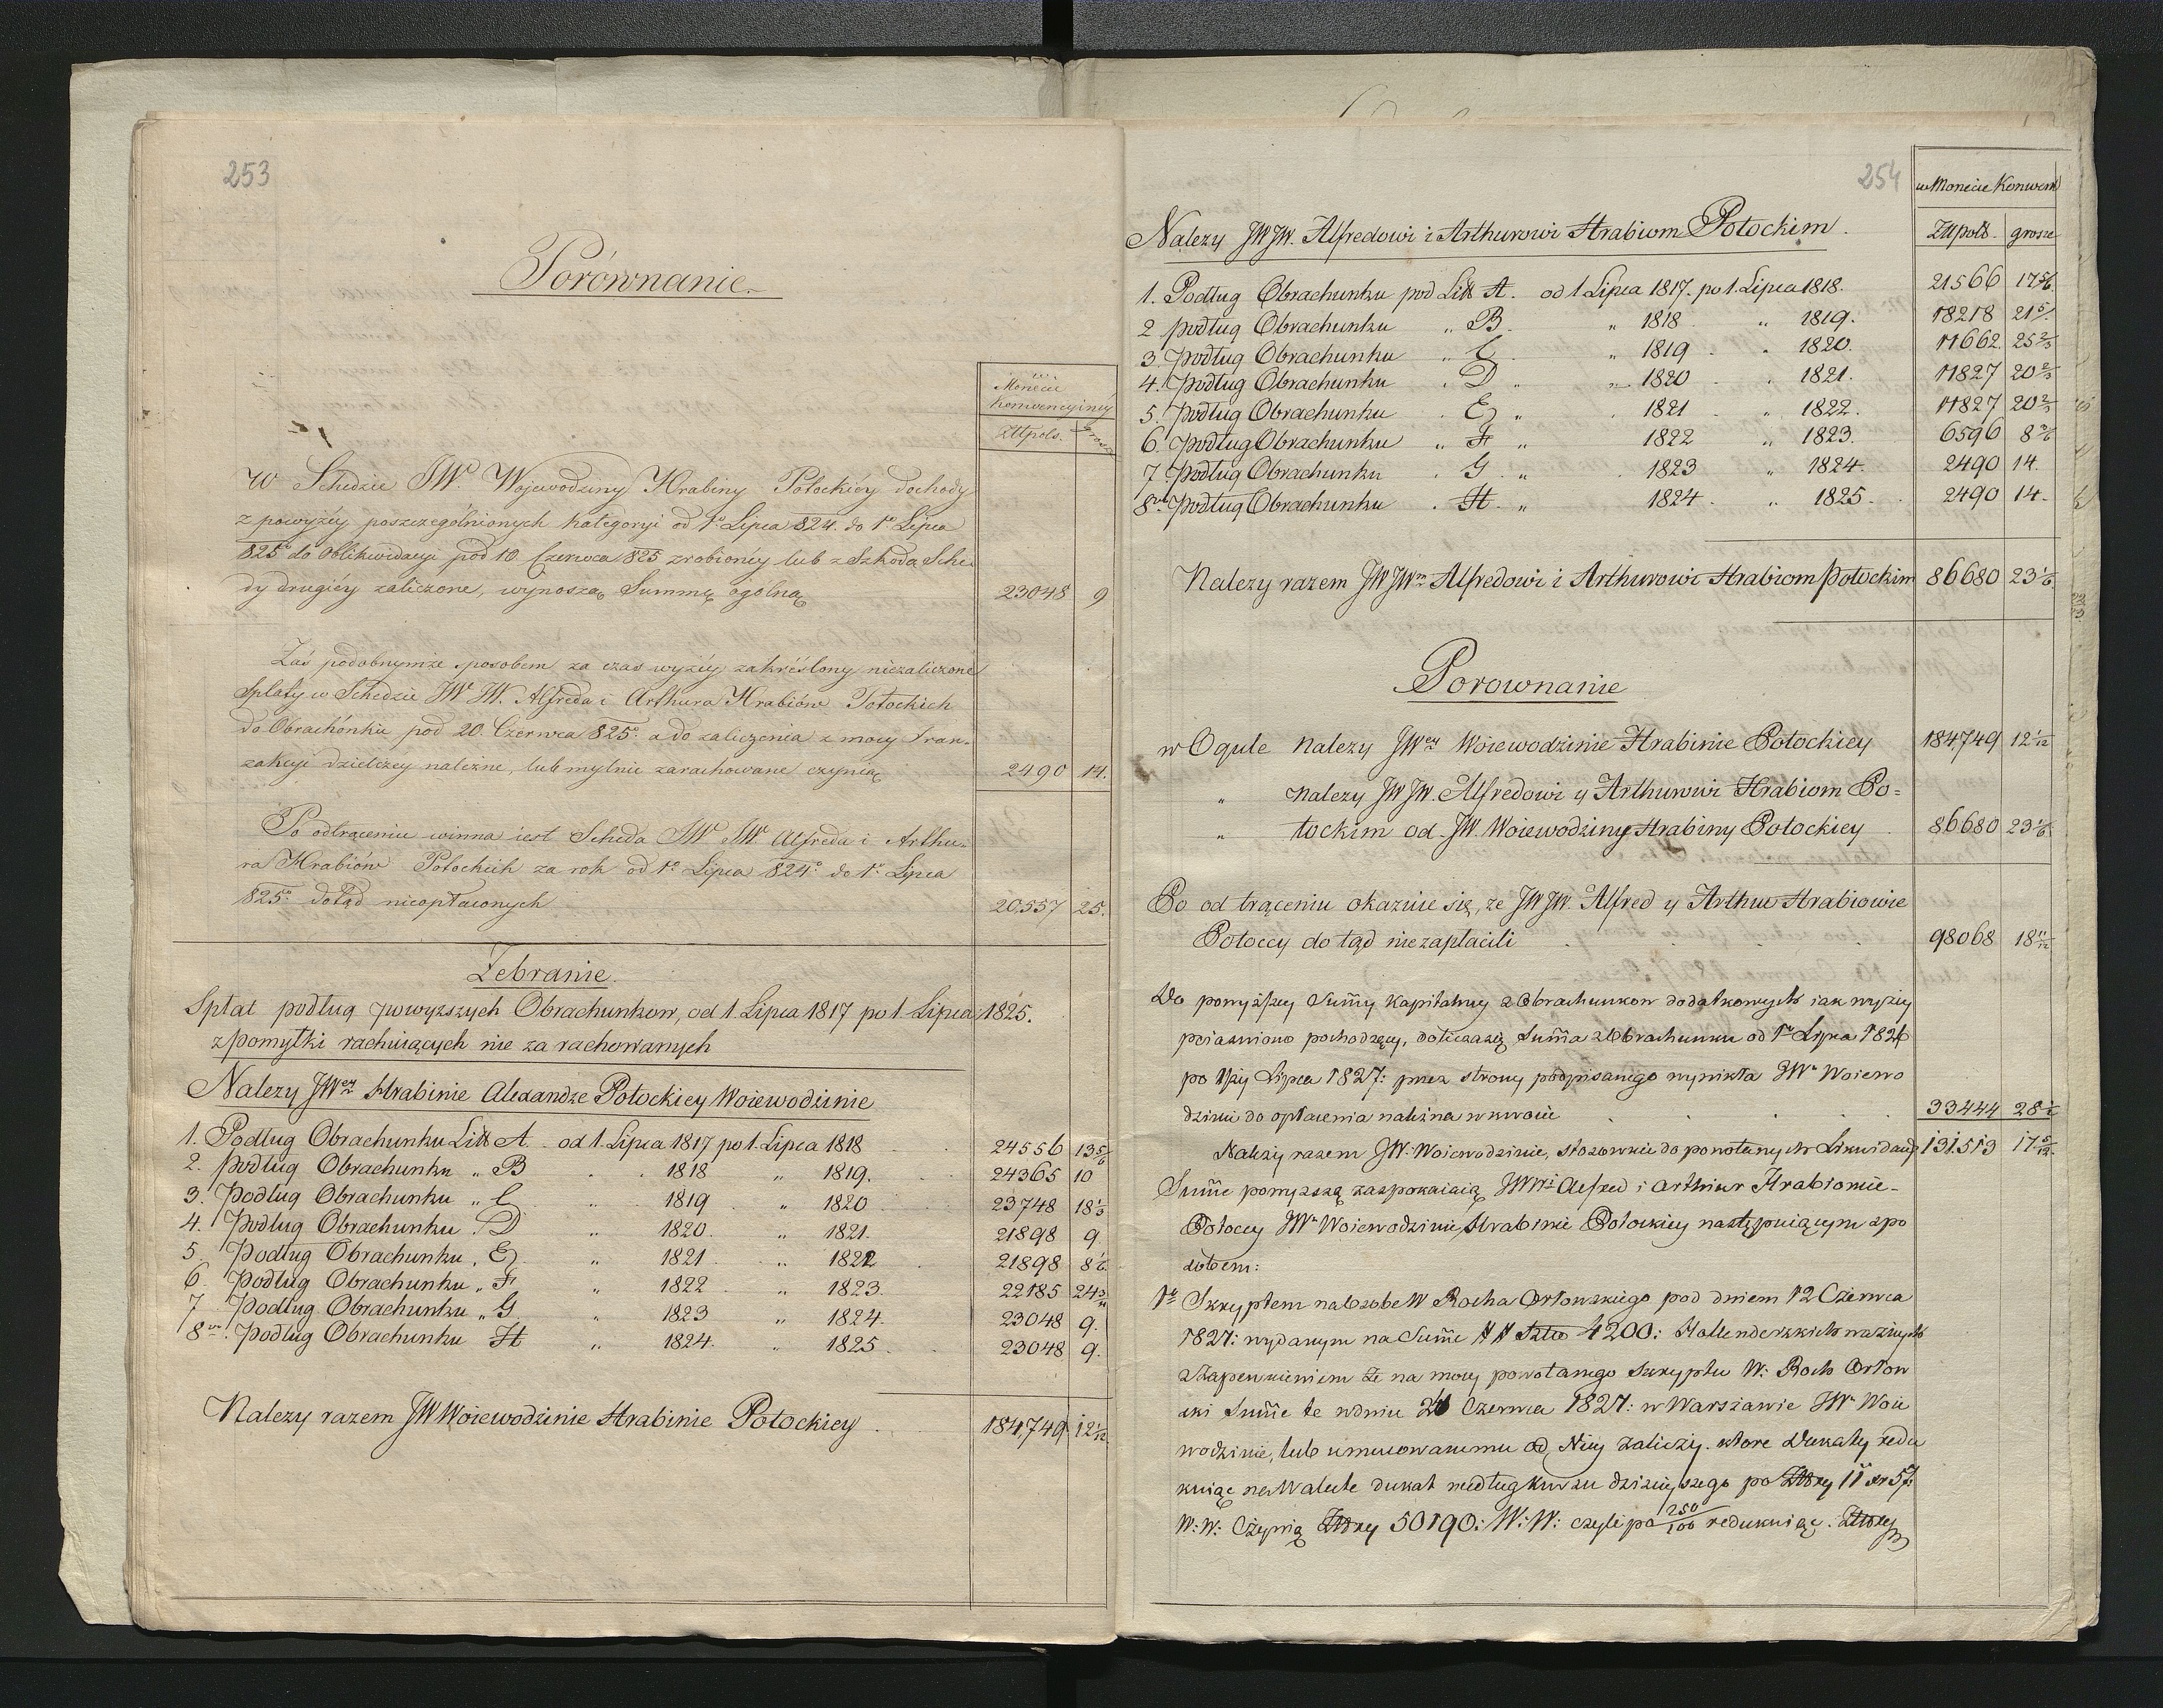 253
Porównanie.
w
Monecie
Konwencyinéy
Złtpols. grosze
W Schedzie JW. Wojewodziny Hrabiny Potockiéy dochody
z powyżéy poszczególnionych kategoryi od 1o Lipca 824. do 1o Lipca
825o do Oblikwidacyi pod 10 Czerwca 825 zrobionéy lub z Szkodą Sche-
dy drugiéy zaliczone, wynoszą Summę ogólną 23048 9
Zaś podobnymże sposobem za czas wyżéy zakréślony niezaliczone
Spłaty w Schedzie JW JW. Alfreda i Arthura Hrabiów Potockich
do Obrachónku pod 20. Czerwca 825o a do zaliczenia z mocy tran-
zakcyi dzielczéy należne, lub mylnie zarachowane czynią 2490 14.
Po odtrąceniu winna iest Scheda JW JW. Alfreda i Arthu-
ra Hrabiów Potockich za rok od 1o Lipca 824o do 1o Lipca
825o dotąd nieopłaconych 20,557 25.
Zebranie.
Spłat podług powyższych Obrachunkow, od 1 Lipca 1817 po 1. Lipca 1825.
z pomyłki rachuiących nie za rachowanych
Nalezy JWey Hrabinie Alexandze Potockiey Woiewodzinie
1. Podług Obrachunku Litt A. od 1. Lipca 1817 po 1. Lipca 1818 24556 13 5/6
2. podług Obrachunku „ B . . 1818 „ 1819. 24365 10
3. Podług Obrachunku „ C „ 1819 „ 1820 23748 18 1/3
4. Podług Obrachunku . D „ 1820. „ 1821. 21898 9
5. Podług Obrachunku . E „ 1821 . „ 1822 21898 8 1/6
6. Podług Obrachunku „ F „ 1822 . „ 1823. 22185 24
7 Podług Obrachunku „ G „ 1823 „ 1824. 23048 9.
8vo. Podług Obrachunku H „ 1824. „ 1825. 23048 9.
Nalezy razem JW Woiewodzinie Hrabinie Potockiey 184,749 12 1/12
254
w Monecie Konwent
Złłpols. grosze
Nalezy JWJW. Alfredowi i Arthurowi Hrabiom Potockim.
1. Podług Obrachunku pod Litt A. od 1 Lipca 1817. po 1. Lipca 1818. 21566 17 5/6
2 podług Obrachunku „ B. „ 1818 „ 1819. 18218 21
3. podług Obrachunku „ C. „ 1819 . „ 1820. 11662. 25 2/3
4. podług Obrachunku . D „ „ 1820 . . 1821. 11827 20 2/3
5. podług Obrachunku . E „ . 1821 . „ 1822. 11827 20 2/3
6. podług Obrachunku „ F „ 1822 „ 1823. 6596 8
7 Podług Obrachunku . G. „ . 1823 „ 1824. 2490 14.
8vo Podług Obrachunku . H. „ 1824 . „ 1825. 2490 14.
Nalezy razem JWJWm Alfredowi i Arthurowi Hrabiom Potockim 86680 23 1/6
Porownanie
w Ogule Nalezy JWey Woiewodzinie Hrabinie Potockiey 184749 12 1/12
„ nalezy JWJW. Alfredowi y Arthurowi Hrabiom Po=
„ tockim od JW. Woiewodziny Hrabiny Potockiey 86680 23 1/6
Po od trąceniu okazuie się, ze JWJW. Alfred y Arthur Hrabiowie
Potoccy do tąd niezapłacili 98068 18 11/12
Do powyższey Summy kapitalney z Obrachunkow dodatkowych iak wyżey
poiasniono pochodzącey, dolicza się Summa z Obrachunku od 1o Lipca 1826
po 1szy Lipca 1827: przez strony podpisanego wynikła JWey Woiewo
dzinie do opłacenia należna w kwocie 33444 28 1/2
Należy razem JW. Woiewodzinie, stosownie do powołanych Likwidacyi 131.513 17 5/12
Summe powyzszą zaspokaiaią JWWi Alfred i Arthur Hrabiowie
Potoccy JWey Woiewodzinie Hrabinie Potockiey następuiącym spo
sobem:
1o Skryptem na Osobe W Rocha Orłowskiego pod dniem 12 Czerwca
1827: wydanym na Summe # # Sztu 4200: Hollenderskich ważnych
z Zapewnieniem że na mocy powołanego Skryptu W: Roch Orłow
ski Summe te w dniu 24 Czerwca 1827: w Warszawie JWey Woie
wodzinie, lub umocowanemu od Niey zaliczy. które Dukaty redu
kuiąc na Walute dukat według kursu dzisieyszego po Złłrey 11 xr 57.
W: W: Czynią Złłrey 50190: W: W: czyli po 250/100 redukuiąc. Złłrey